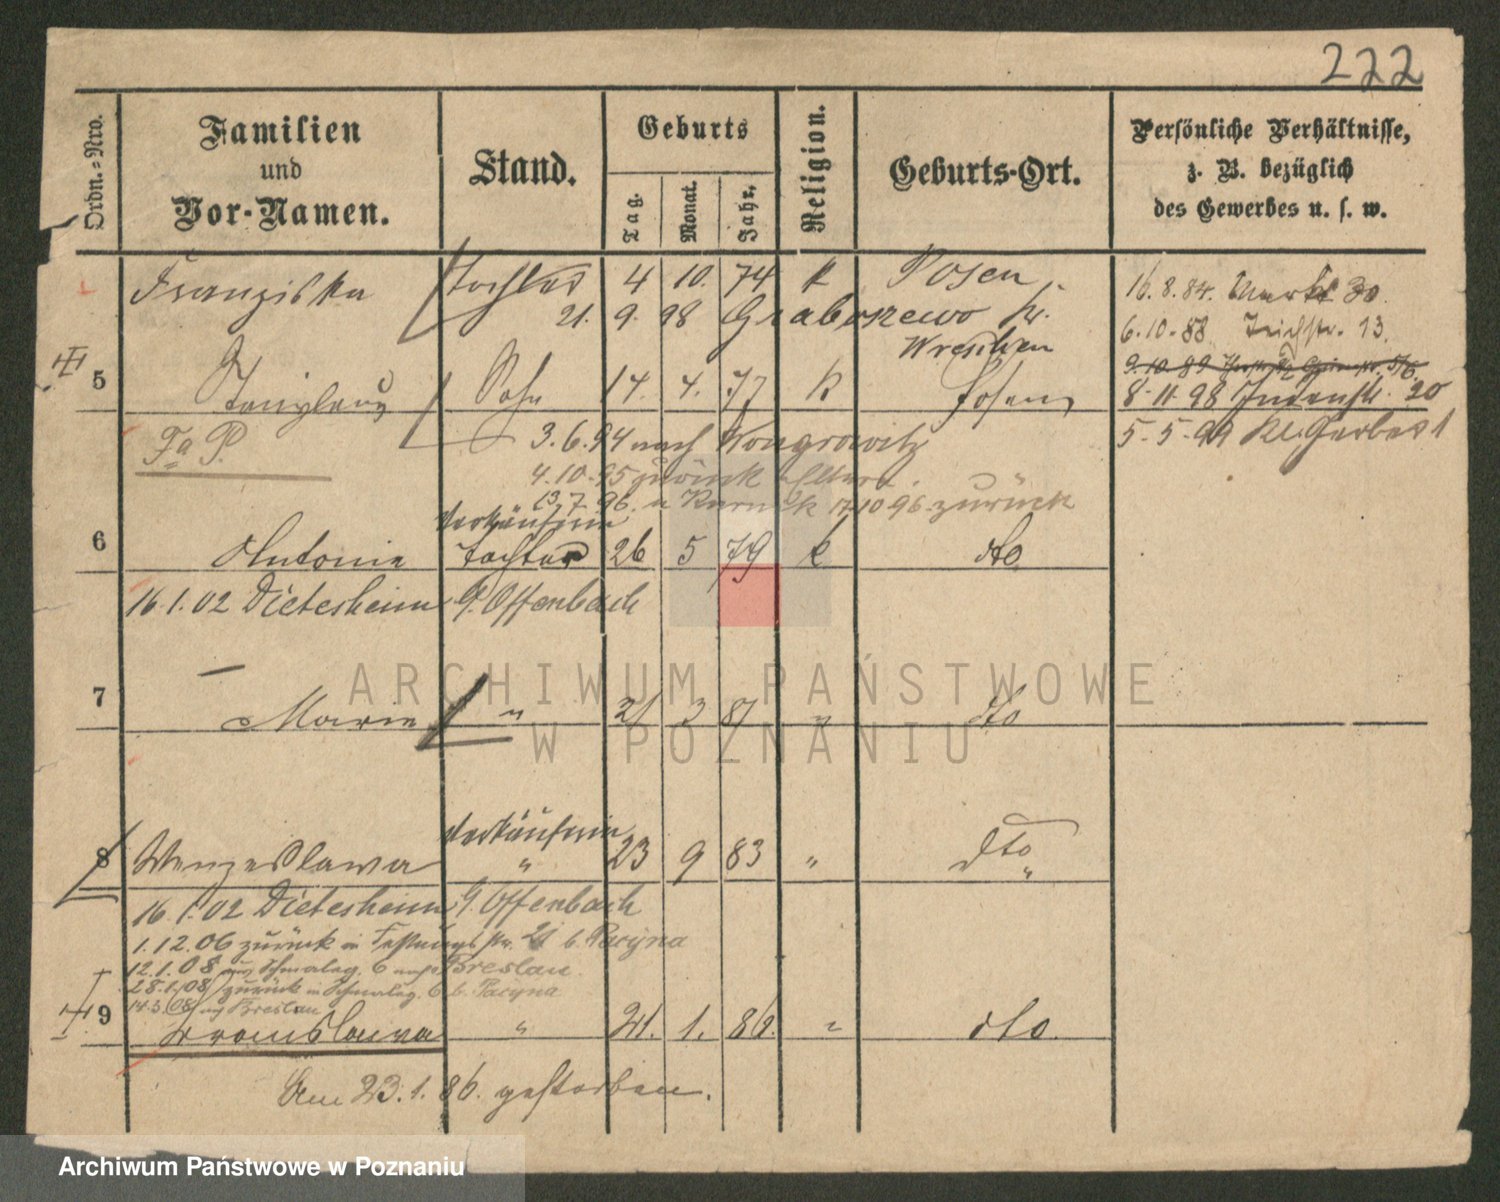 222
Ordn.-Nro.
Familien
und
Vor-Namen.
Stand.
Geburts
Tag.
Monat.
Jahr.
Religion.
Geburts-Ort.
Persönliche Verhältnisse,
z. B. bezüglich
des Gewerbes u. s. w.
Franziska Tochter 4 10. 74 k Posen
21. 9. 98 Grabozewo Kr.
Wreschen
16.8.84. Markt
6.10.88 Teichstr. 13.
9.10.89
8.11.98 Judenstr. 20
5.5.99 Kl. Gerberst
5 Stanislaus Sohn 14. 4. 77 k Posen
Fa P.
3.6.94 nach Wongrowitz
4.10.95 zurück Eltern.
13.7.96. n Kurnik 17.10.96 zurück
Verkäuferin
6 Antonie Tochter 26 5 79 k dto
16.1.02 Dietesheim b. Offenbach
7 Marie " 21 3 87 " dto
Verkäuferin
8 Wenzeslawa " 23 9 83 " dto "
16.1.02 Dietesheim b. Offenbach
1.12.06 zurück in Festungsstr. 21 b. Pacyna
12.1.08 aus Schmaleg. 6 nach Breslau.
28.1.08 zurück in Schmaleg. 6 b. Pacyna
14.3.08 Breslau
9 Bronislawa " 21. 1. 86. " dto.
Am 23.1.86. gestorben.
ARCHIWUM PAŃSTWOWE
W POZNANIU
Archiwum Państwowe w Poznaniu